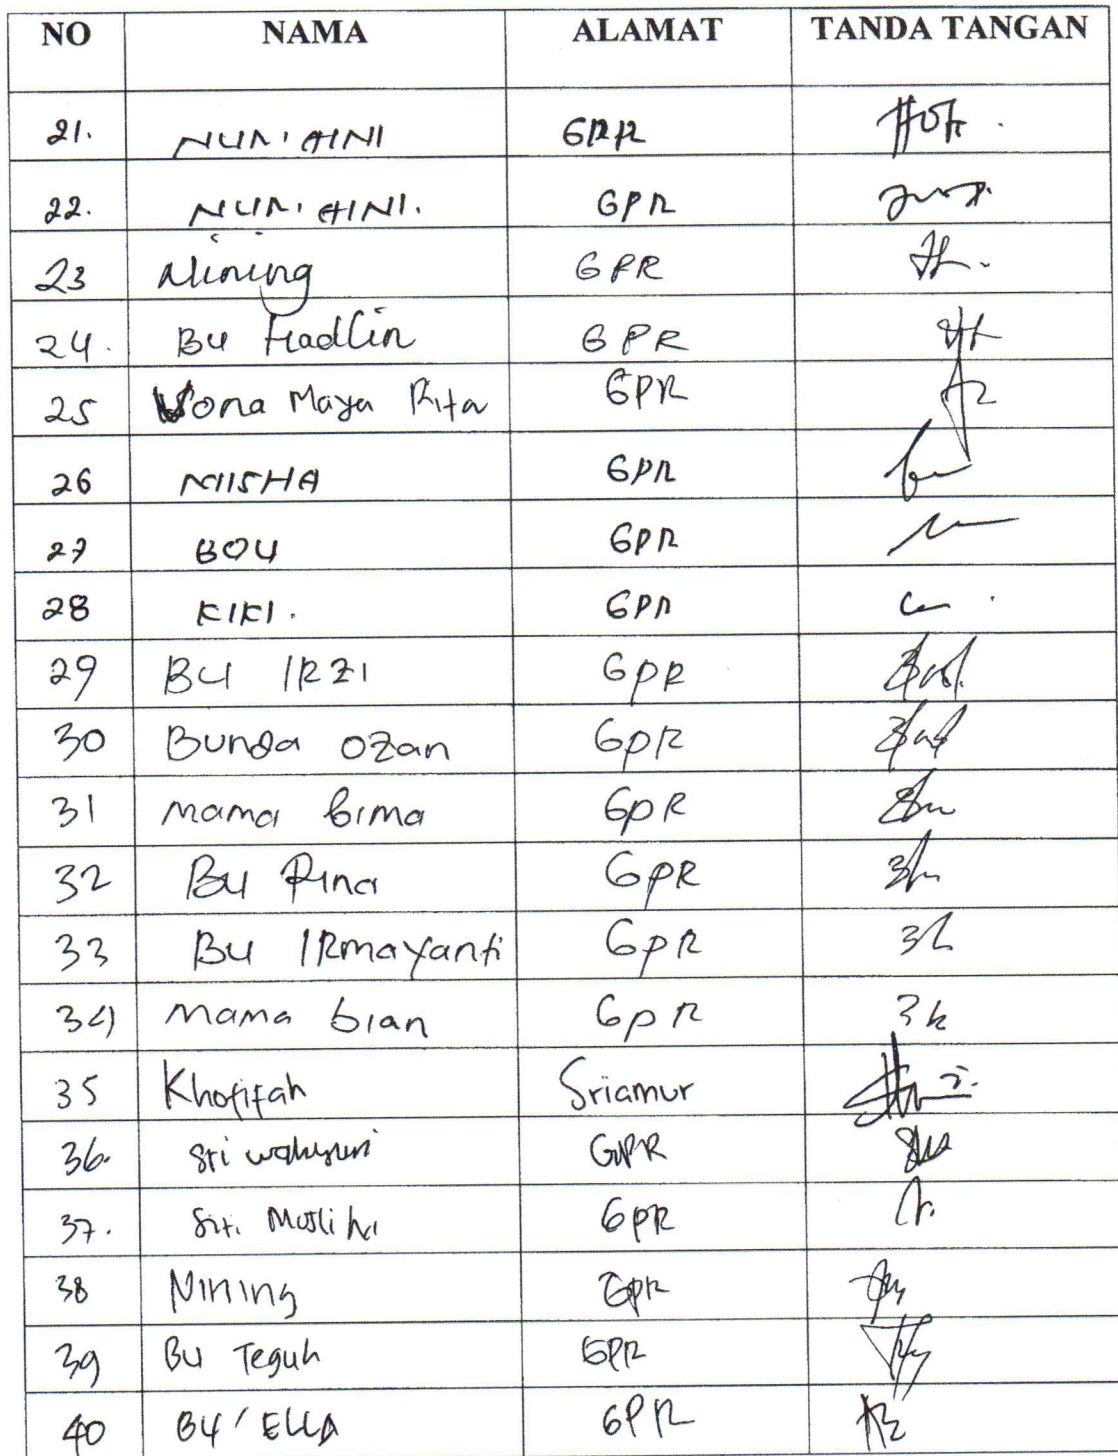 NO NAMA ALAMAT TANDA TANGAN
21. NUR'AINI GPR
22. NUR'AINI. GPR
23 Nining GPR
24. Bu Hadlin GPR
25 Vona Maya Rita GPR
26 NIISHA GPR
27 BOU GPR
28 KIKI. GPR
29 BU IRZI GPR
30 Bunda OZan GPR
31 mama bima GPR
32 BU Rina GPR
33 BU IRmayanti GPR
34 mama bian GPR
35 Khofifah Sriamur
36. Sri wahyuni GPR
37. Siti Musliha GPR
38 Nining GPR
39 Bu Teguh GPR
40 BU' ELLA GPR